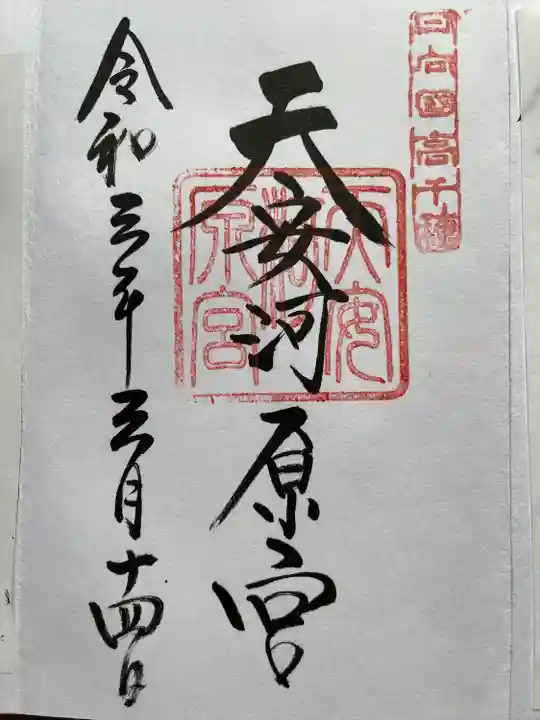 日向國高千穂
天安河原宮
天安
河
原宮
令和三年三月十四日